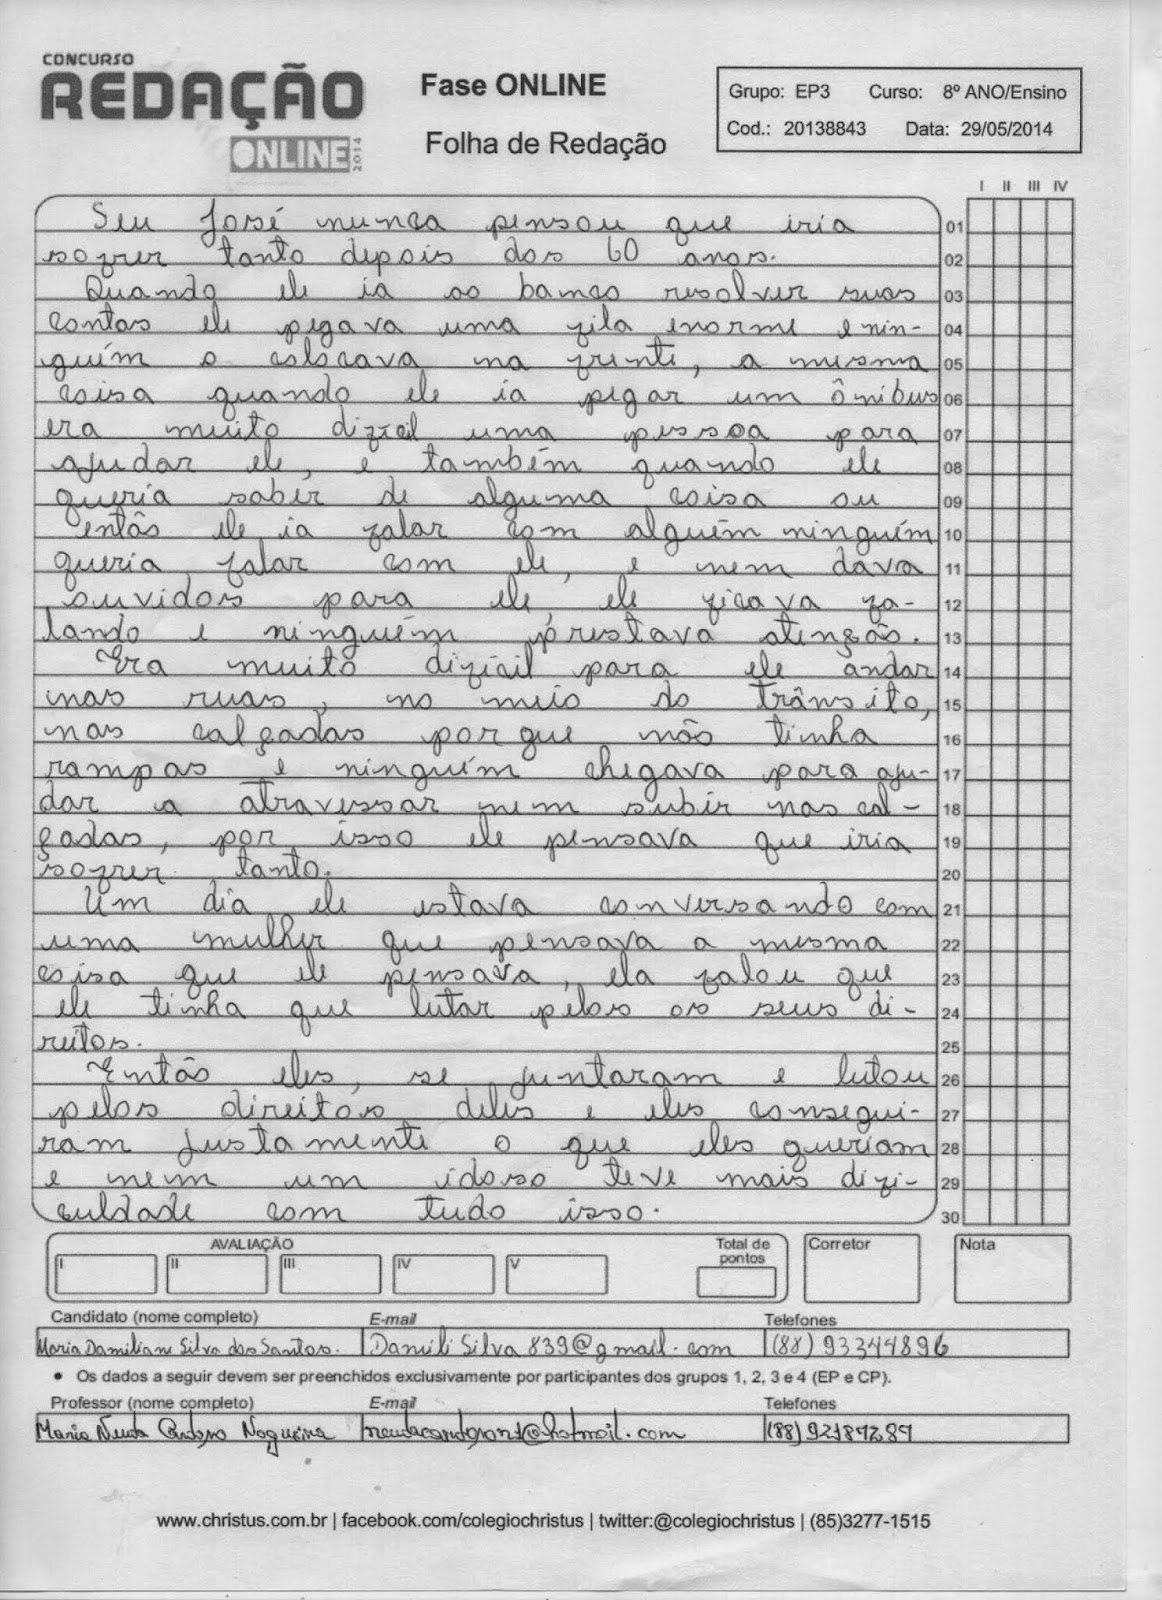 CONCURSO
REDAÇÃO
ONLINE 2014
Fase ONLINE
Folha de Redação
Grupo: EP3 Curso: 8º ANO/Ensino
Cod.: 20138843 Data: 29/05/2014
I II III IV
Seu José nunca pensou que iria 01
sofrer tanto depois dos 60 anos. 02
Quando ele ia ao banco resolver suas 03
contas ele pegava uma fila enorme e nin- 04
guém o colocava na frente, a mesma 05
coisa quando ele ia pegar um ônibus 06
era muito difícil uma pessoa para 07
ajudar ele, e também quando ele 08
queria saber de alguma coisa ou 09
então ele ia falar com alguém ninguém 10
queria falar com ele, e nem dava 11
ouvidos para ele, ele ficava fa- 12
lando e ninguém prestava atenção. 13
Era muito difícil para ele andar 14
nas ruas, no meio do trânsito, 15
nas calçadas porque não tinha 16
rampas e ninguém chegava para aju- 17
dar a atravessar nem subir nas cal- 18
çadas, por isso ele pensava que iria 19
sofrer tanto. 20
Um dia ele estava conversando com 21
uma mulher que pensava a mesma 22
coisa que ele pensava, ela falou que 23
ele tinha que lutar pelos os seus di- 24
reitos. 25
Então eles, se juntaram e lutou 26
pelos direitos deles e eles consegui- 27
ram justamente o que eles queriam 28
e nem um idoso teve mais difi- 29
culdade com tudo isso. 30
AVALIAÇÃO
I II III IV V
Total de pontos
Corretor
Nota
Candidato (nome completo) E-mail Telefones
Maria Damiliane Silva dos Santos. Damili Silva 839@gmail.com (88) 93344896
• Os dados a seguir devem ser preenchidos exclusivamente por participantes dos grupos 1, 2, 3 e 4 (EP e CP).
Professor (nome completo) E-mail Telefones
Maria Neuda Cardoso Nogueira @hotmail.com
www.christus.com.br | facebook.com/colegiochristus | twitter:@colegiochristus | (85)3277-1515